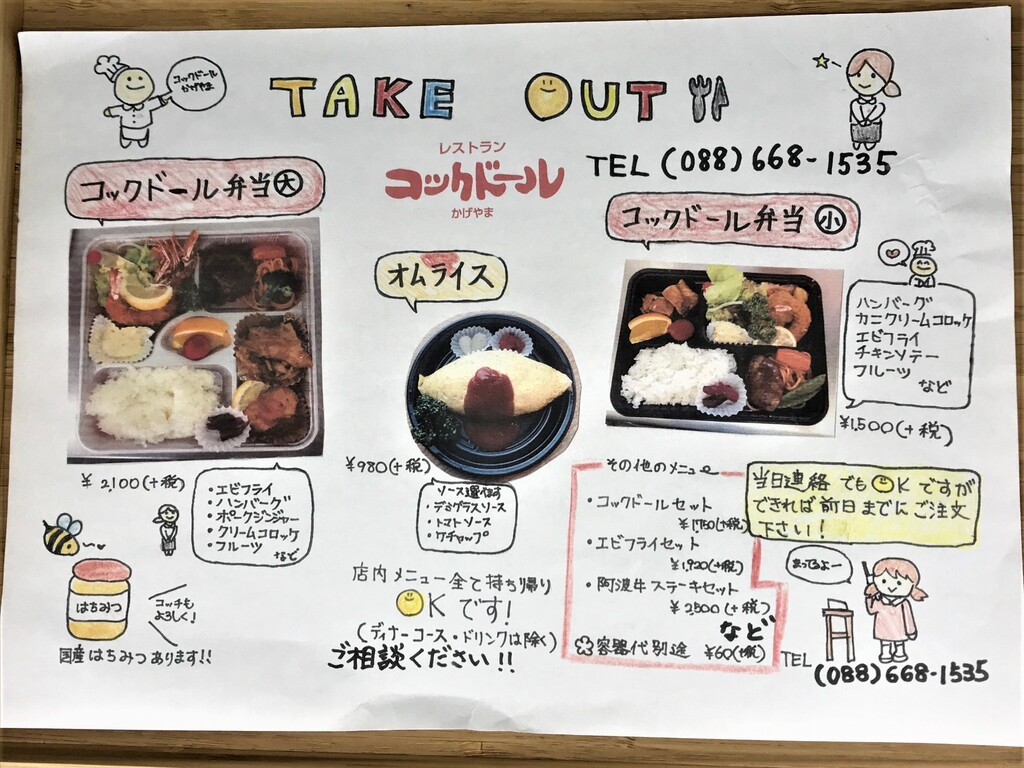 コックドール
かげやま
TAKE OUT
レストラン
コックドール
かげやま
TEL (088) 668-1535
コックドール弁当大
オムライス
コックドール弁当小
ハンバーグ
カニクリームコロッケ
エビフライ
チキンソテー
フルーツ
など
¥1,500(+税)
¥2,100(+税)
・エビフライ
・ハンバーグ
・ポークジンジャー
・クリームコロッケ
・フルーツ
など
¥980(+税)
ソース選べます
・デミグラスソース
・トマトソース
・ケチャップ
その他のメニュー
・コックドールセット
¥1,750(+税)
・エビフライセット
¥1,920(+税)
・阿波牛ステーキセット
¥2,500(+税)
など
容器代別途 ¥60(+税)
当日連絡でもOKですが
できれば前日までにご注文
下さい!
まってるよー
TEL
(088)668-1535
店内メニュー全て持ち帰り
OKです!
(ディナーコース・ドリンクは除く)
ご相談ください!!
はちみつ
コッチも
よろしく!
国産はちみつあります!!